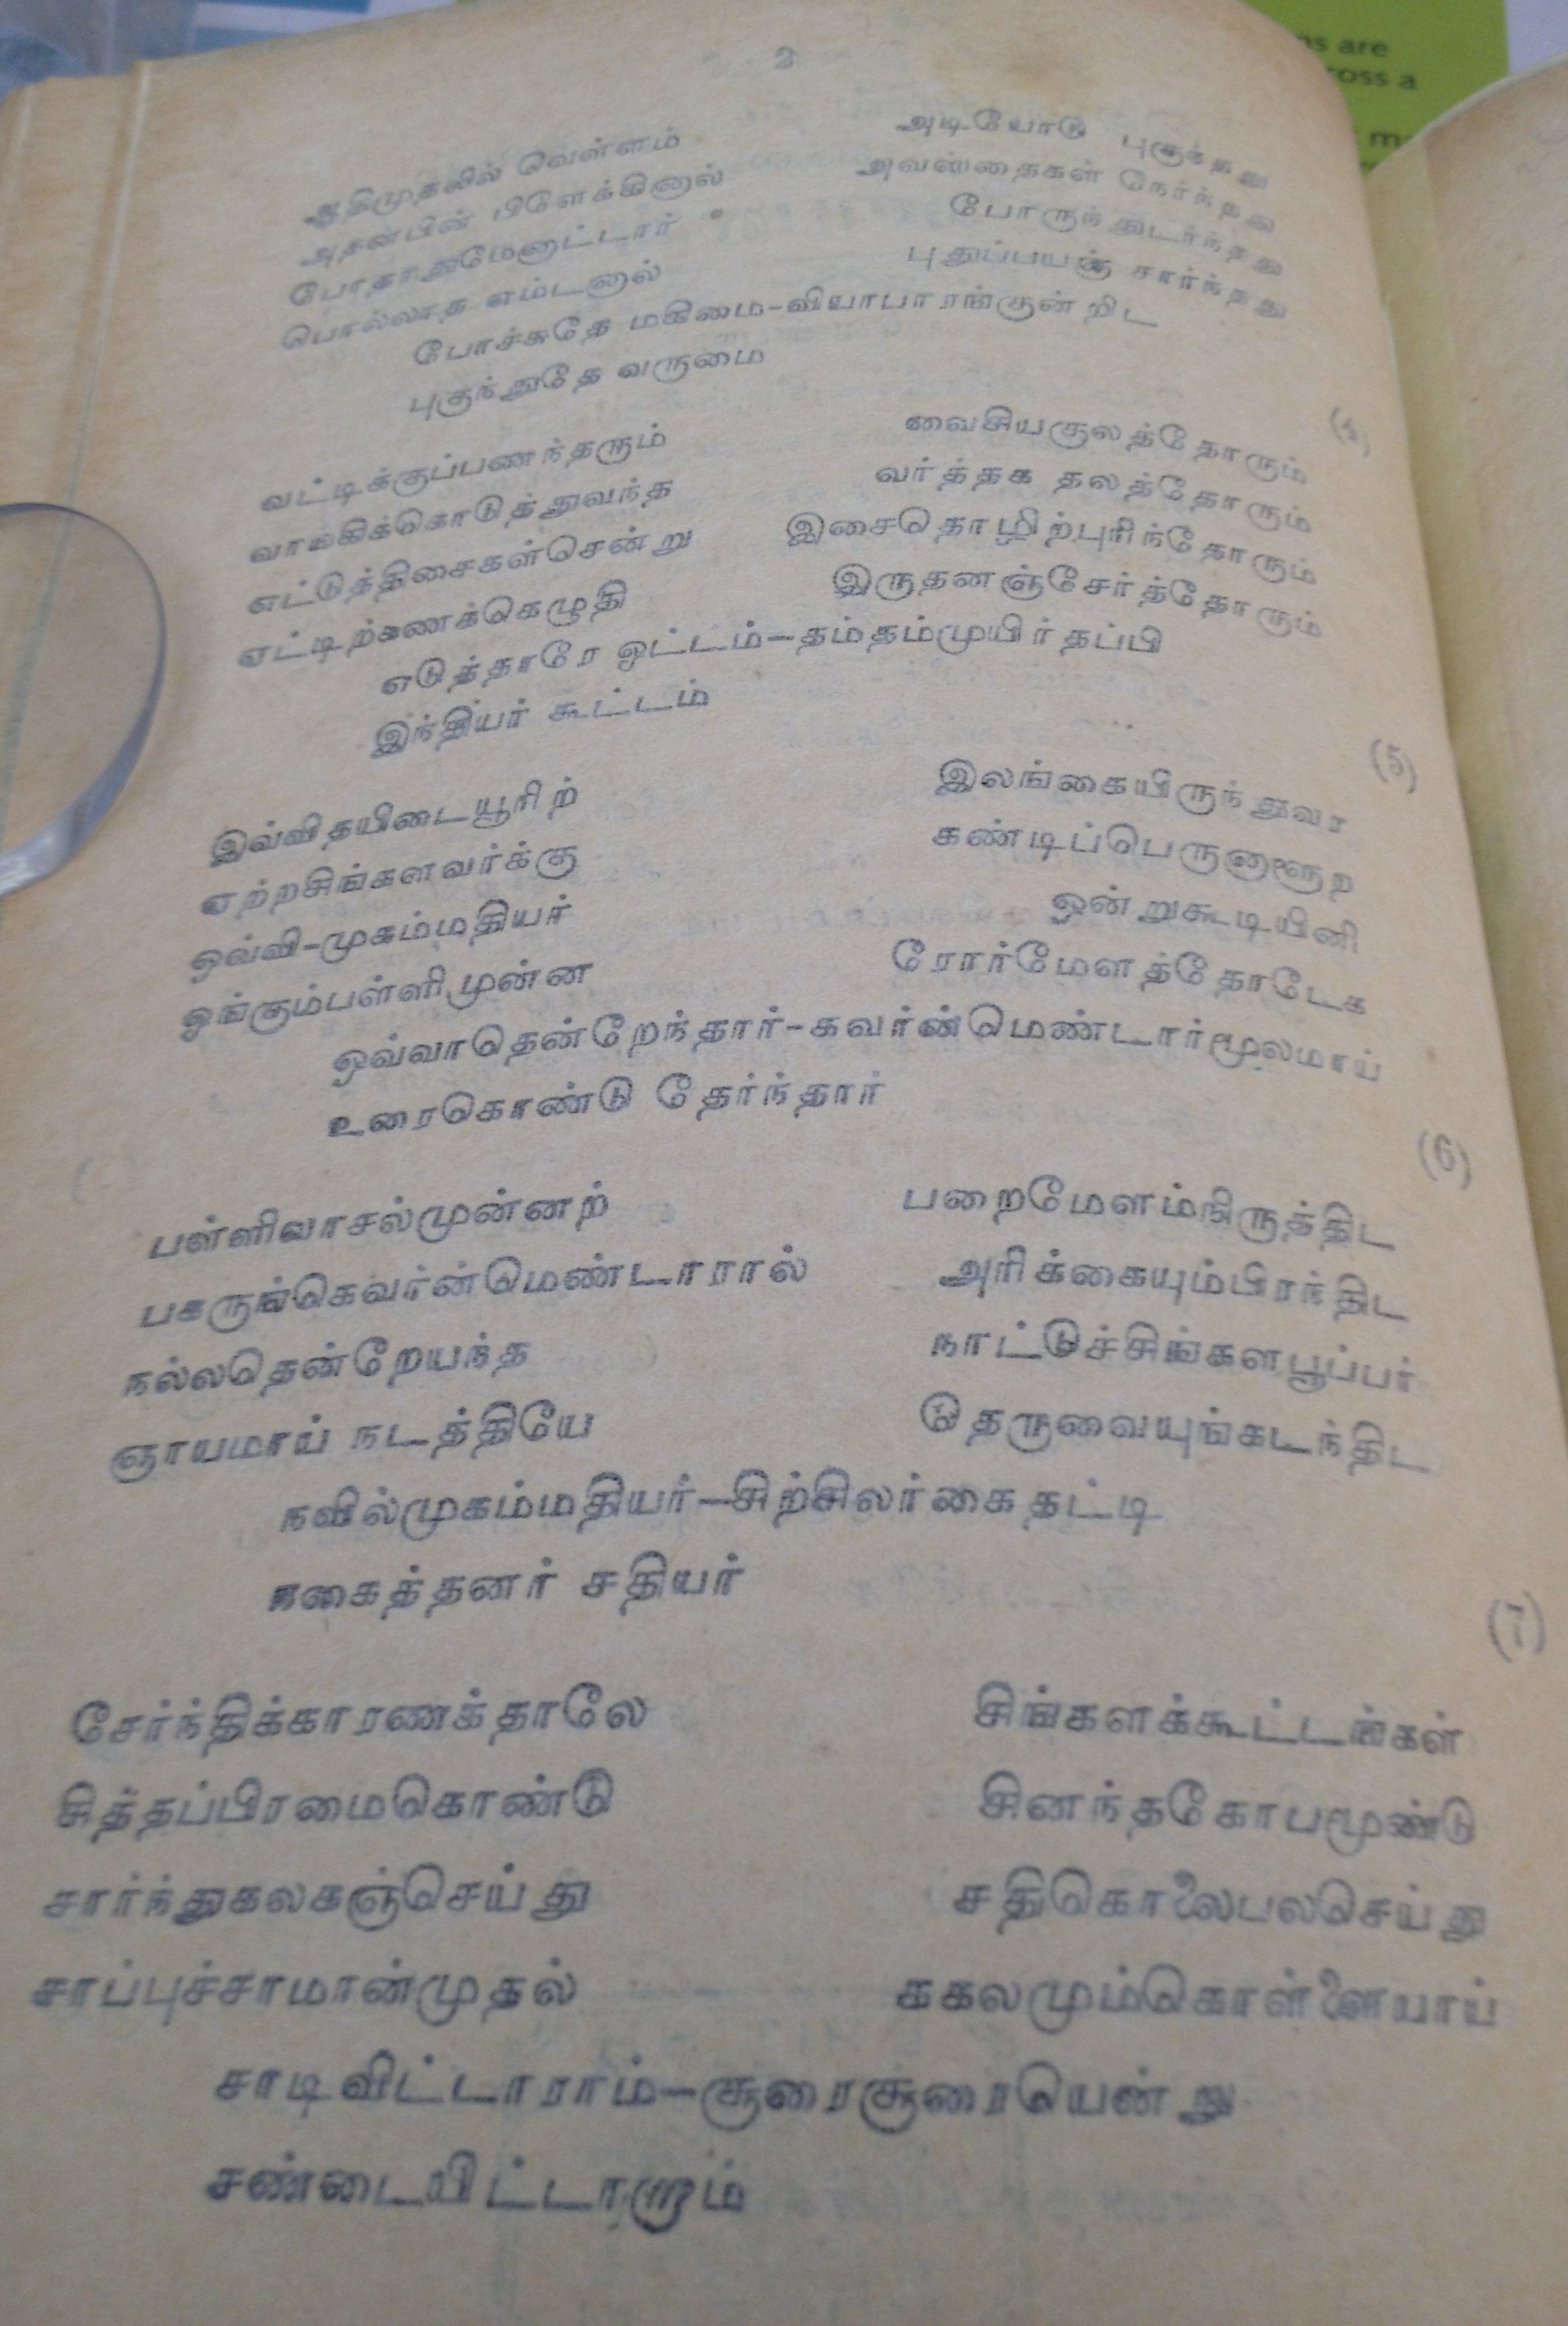 2
ஆதிமுதலில் வெள்ளம் அடியோடு புகுந்தது
அதன்பின் பிளேக்கினால் அவஸ்தைகள் நேர்ந்தது
போதாதுமேனாட்டார் போருந்துடர்ந்தது
பொல்லாத எம்டனால் புதுப்பயஞ் சார்ந்தது
போச்சுதே மகிமை-வியாபாரங்குன்றிட
புகுந்துதே வருமை
(4)
வட்டிக்குப்பணந்தரும் வைசியகுலத்தோரும்
வாங்கிக்கொடுத்துவந்த வர்த்தக தலத்தோரும்
எட்டுத்திசைகள்சென்று இசைதொழிற்புரிந்தோரும்
ஏட்டிற்கணக்கெழுதி இருதனஞ்சேர்த்தோரும்
எடுத்தாரே ஓட்டம்—தம்தம்முயிர்தப்பி
இந்தியர் கூட்டம்
(5)
இவ்விதயிடையூரிற் இலங்கையிருந்துவர
ஏற்றசிங்களவர்க்கு கண்டிப்பெருனாளூற
ஒவ்வி-முகம்மதியர் ஒன்றுகூடியினி
ஓங்கும்பள்ளிமுன்ன ரோர்மேளத்தோடேக
ஒவ்வாதென்றேந்தார்-கவர்ன்மெண்டார்மூலமாய்
உரைகொண்டு தேர்ந்தார்
(6)
பள்ளிவாசல்முன்னற் பறைமேளம்நிருத்திட
பகருங்கெவர்ன்மெண்டாரால் அரிக்கையும்பிரந்திட
நல்லதென்றேயந்த நாட்டுச்சிங்களபூப்பர்
ஞாயமாய் நடத்தியே தெருவையுங்கடந்திட
நவில்முகம்மதியர்—சிற்சிலர்கைதட்டி
நகைத்தனர் சதியர்
(7)
சேர்ந்திக்காரணக்தாலே சிங்களக்கூட்டங்கள்
சித்தப்பிரமைகொண்டு சினந்தகோபமூண்டு
சார்ந்துகலகஞ்செய்து சதிகொலைபலசெய்து
சாப்புச்சாமான்முதல் சகலமும்கொள்ளையாய்
சாடிவிட்டாராம்—சூரைசூரையென்று
சண்டையிட்டாராம்